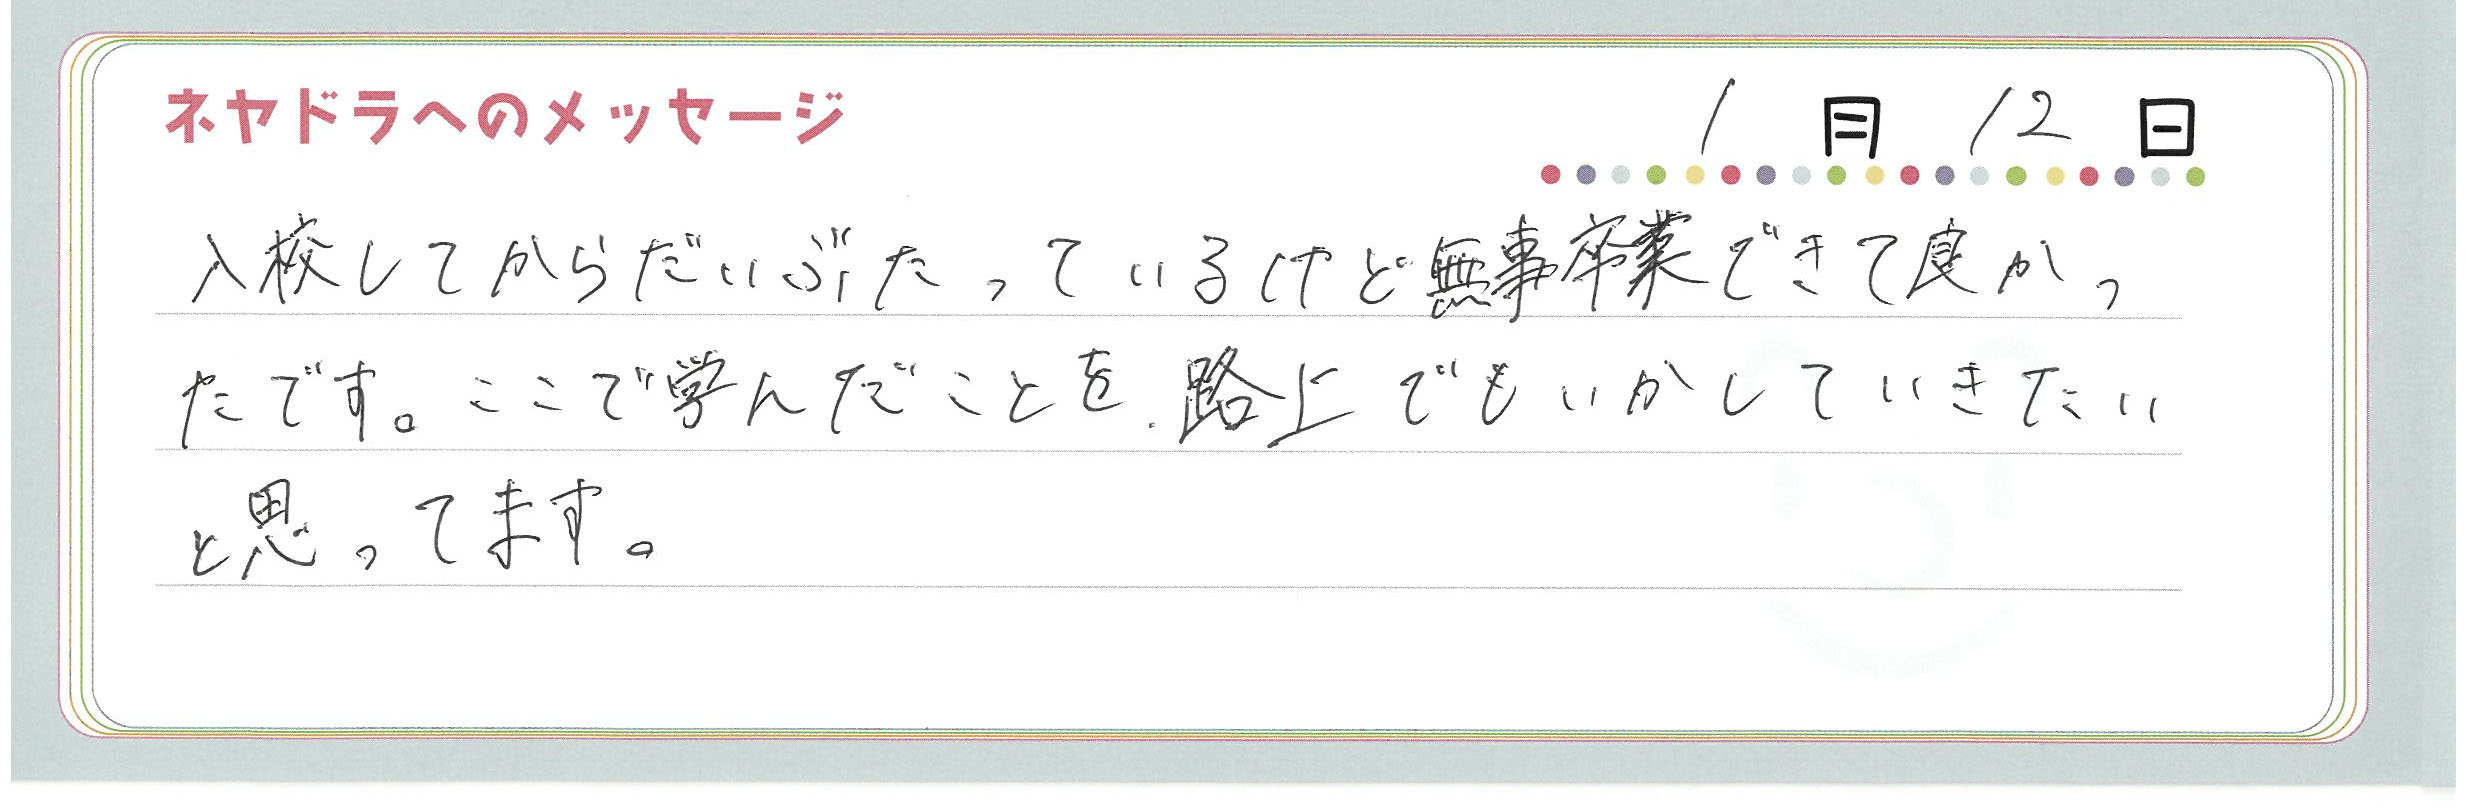 ネヤドラへのメッセージ
1月12日
入校してからだいぶたっているけど無事卒業できて良かっ
たです。ここで学んだことを.路上でもいかしていきたい
と思ってます。